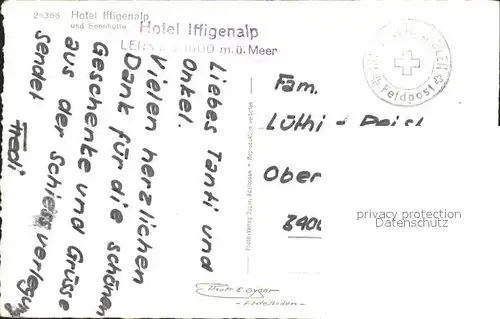 24365 Hotel Iffigenalp
und Sennhütte
Hotel Iffigenalp
1600 m.ü. Meer
Liebes Tanti und
Onkel.
Vielen herzlichen
Dank für die schönen
Geschenke und Grüsse
aus der Schiessverlegung
sendet
Fredi
Photo-Verlag Gyger, Adelboden - Reproduktion verboten
Feldpost
Fam.
Lüthi -
Ober
privacy protection
watermark
Phot. E. Gyger
- Adelboden -